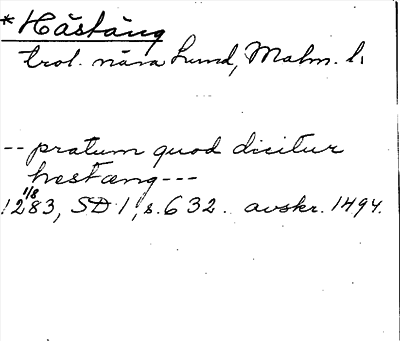 *Hästäng
trol. nära Lund, Malm. l.
-- pratum quod dicitur
hestæng ---
1/8
1283, SD 1, s. 632. avskr. 1494.